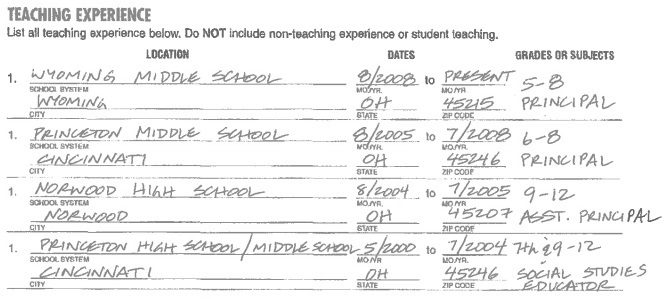 TEACHING EXPERIENCE
List all teaching experience below. Do NOT include non-teaching experience or student teaching.
LOCATION DATES GRADES OR SUBJECTS
1. WYOMING MIDDLE SCHOOL 8/2008 to PRESENT 5-8
SCHOOL SYSTEM MO./YR. MO./YR.
WYOMING OH 45215 PRINCIPAL
CITY STATE ZIP CODE
1. PRINCETON MIDDLE SCHOOL 8/2005 to 7/2008 6-8
SCHOOL SYSTEM MO./YR. MO./YR.
CINCINNATI OH 45246 PRINCIPAL
CITY STATE ZIP CODE
1. NORWOOD HIGH SCHOOL 8/2004 to 7/2005 9-12
SCHOOL SYSTEM MO./YR. MO./YR.
NORWOOD OH 45207 ASST. PRINCIPAL
CITY STATE ZIP CODE
1. PRINCETON HIGH SCHOOL/MIDDLE SCHOOL 5/2000 to 7/2004 7th & 9-12
SCHOOL SYSTEM MO./YR. MO./YR.
CINCINNATI OH 45246 SOCIAL STUDIES
CITY STATE ZIP CODE EDUCATOR